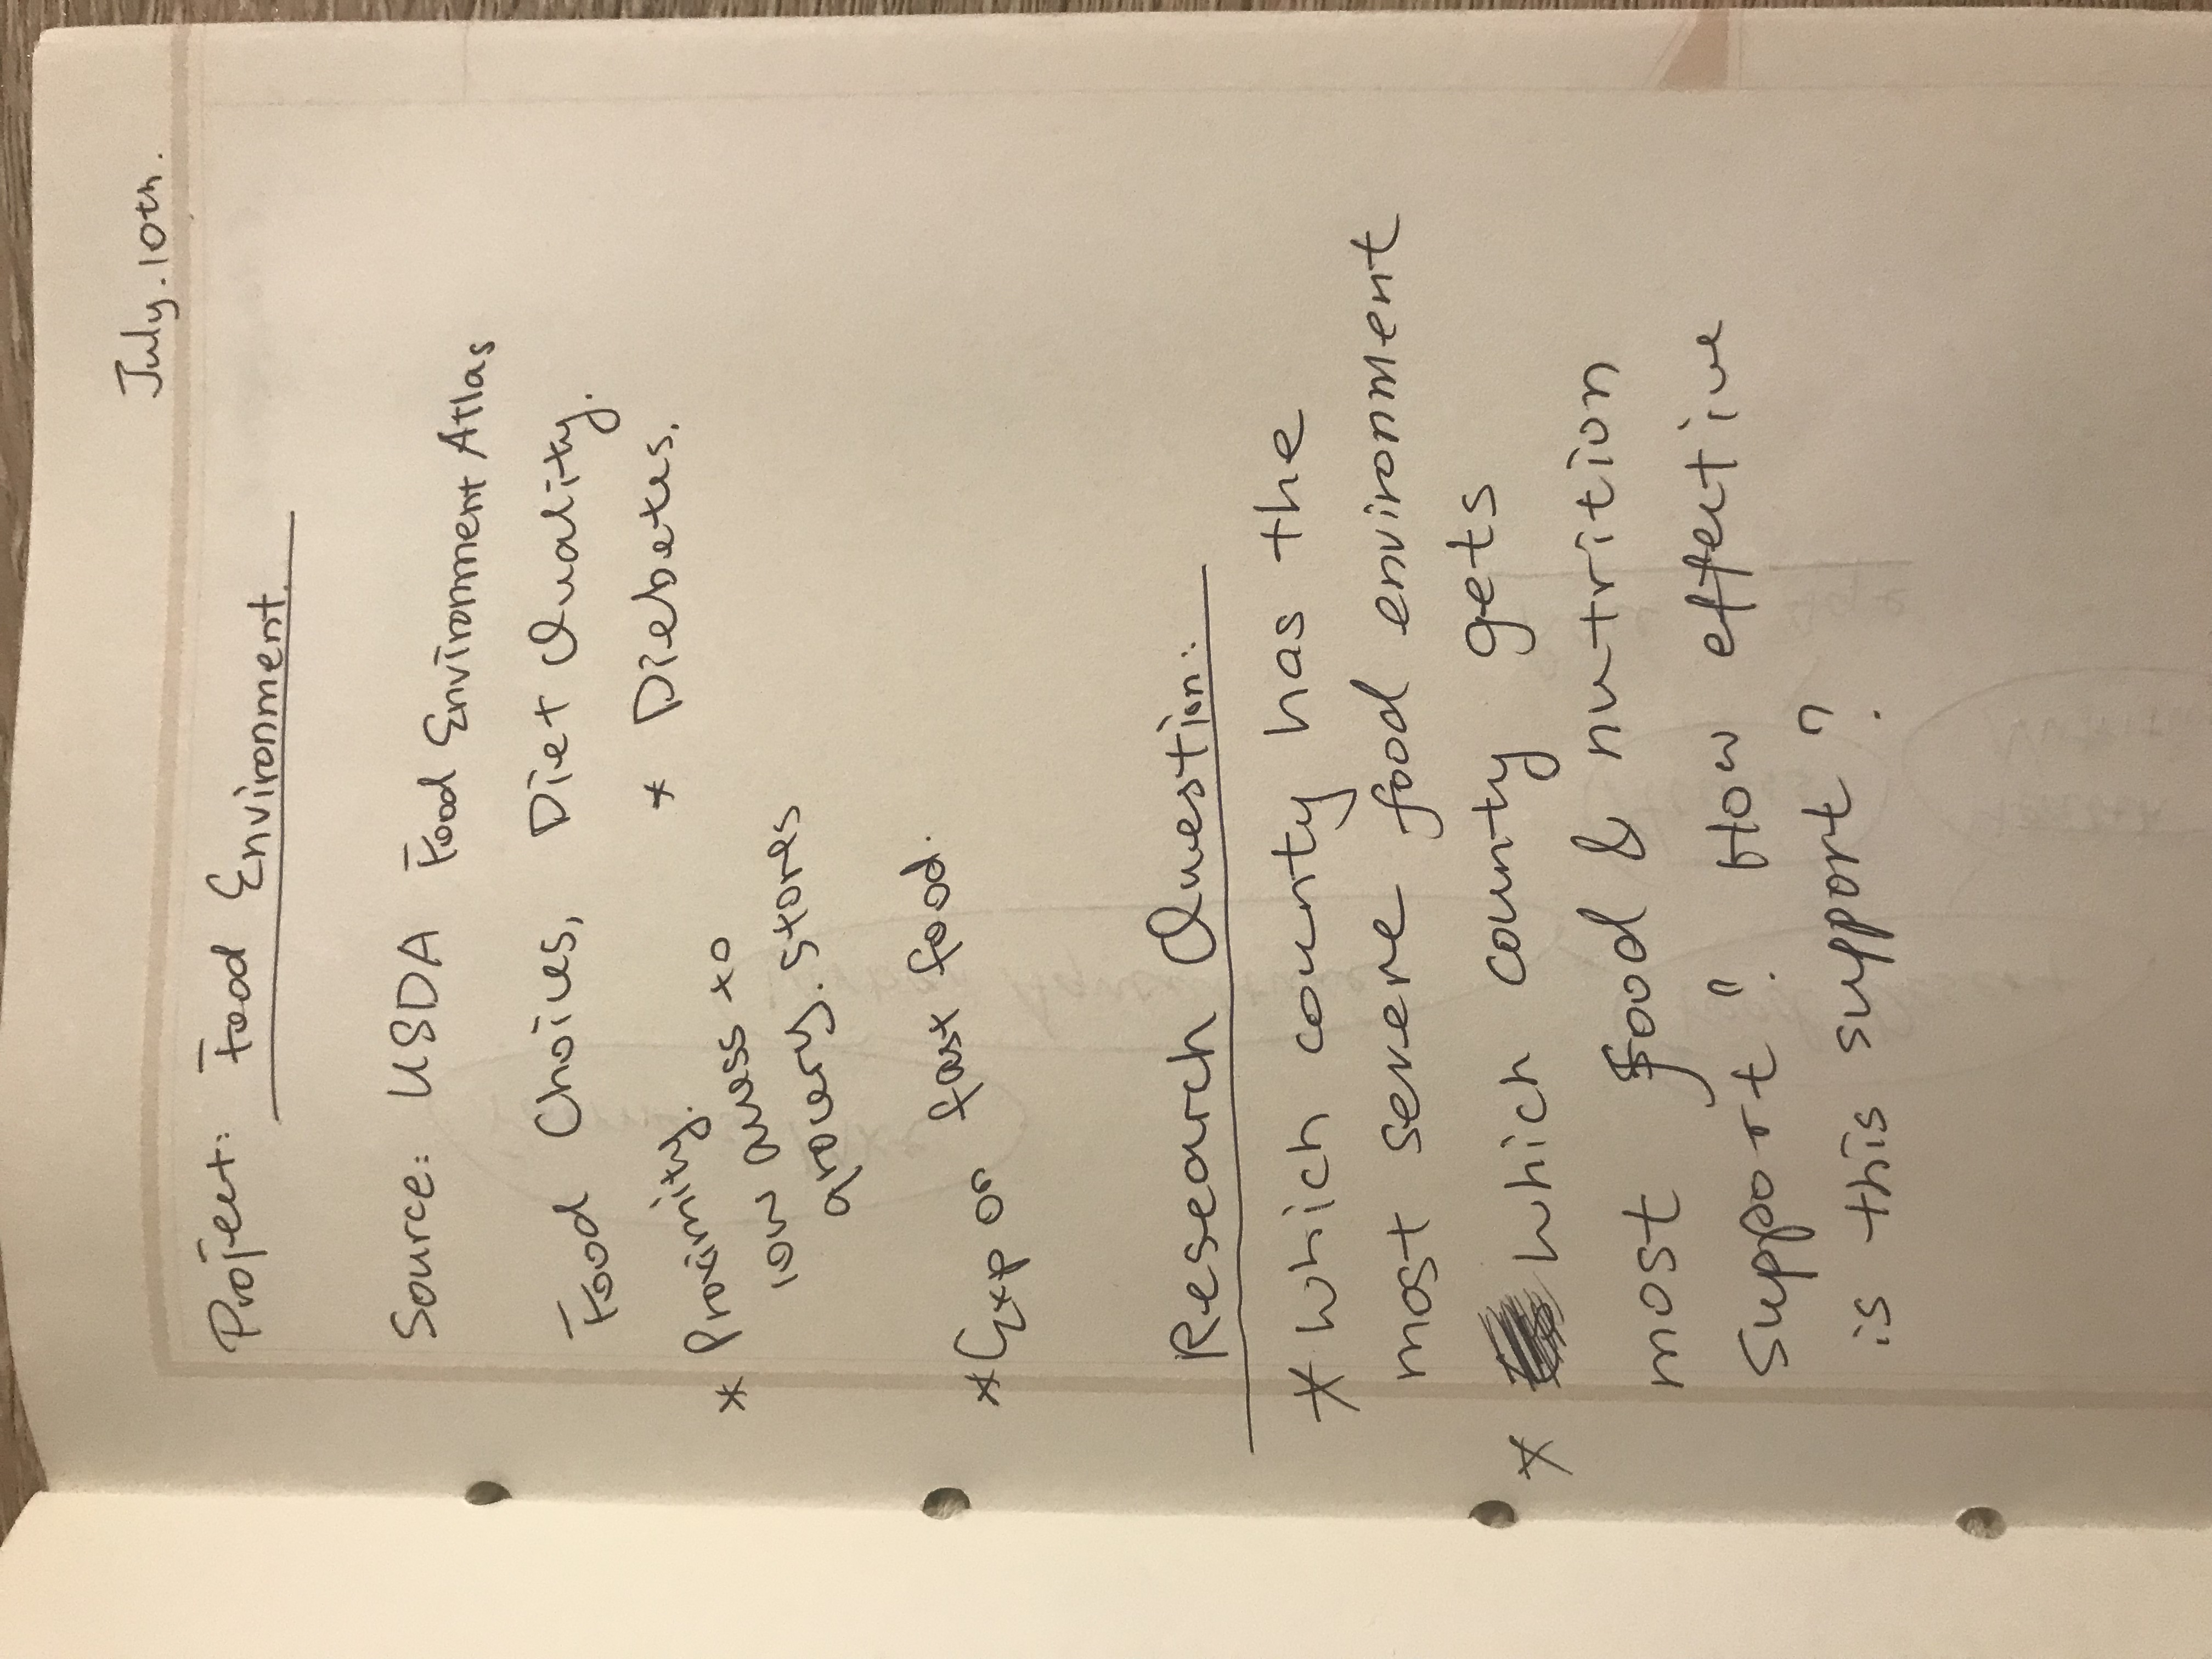 July.10th.
Project: Food Environment.
Source: USDA Food Environment Atlas
Food Choices, Diet Quality.
* Diebetes.
* Proximity.
low access to
grocery. stores
* Exp on fast food.
Research Question:
* Which county has the
most severe food environment
* Which county gets
most food & nutrition
support? How effective
is this support?